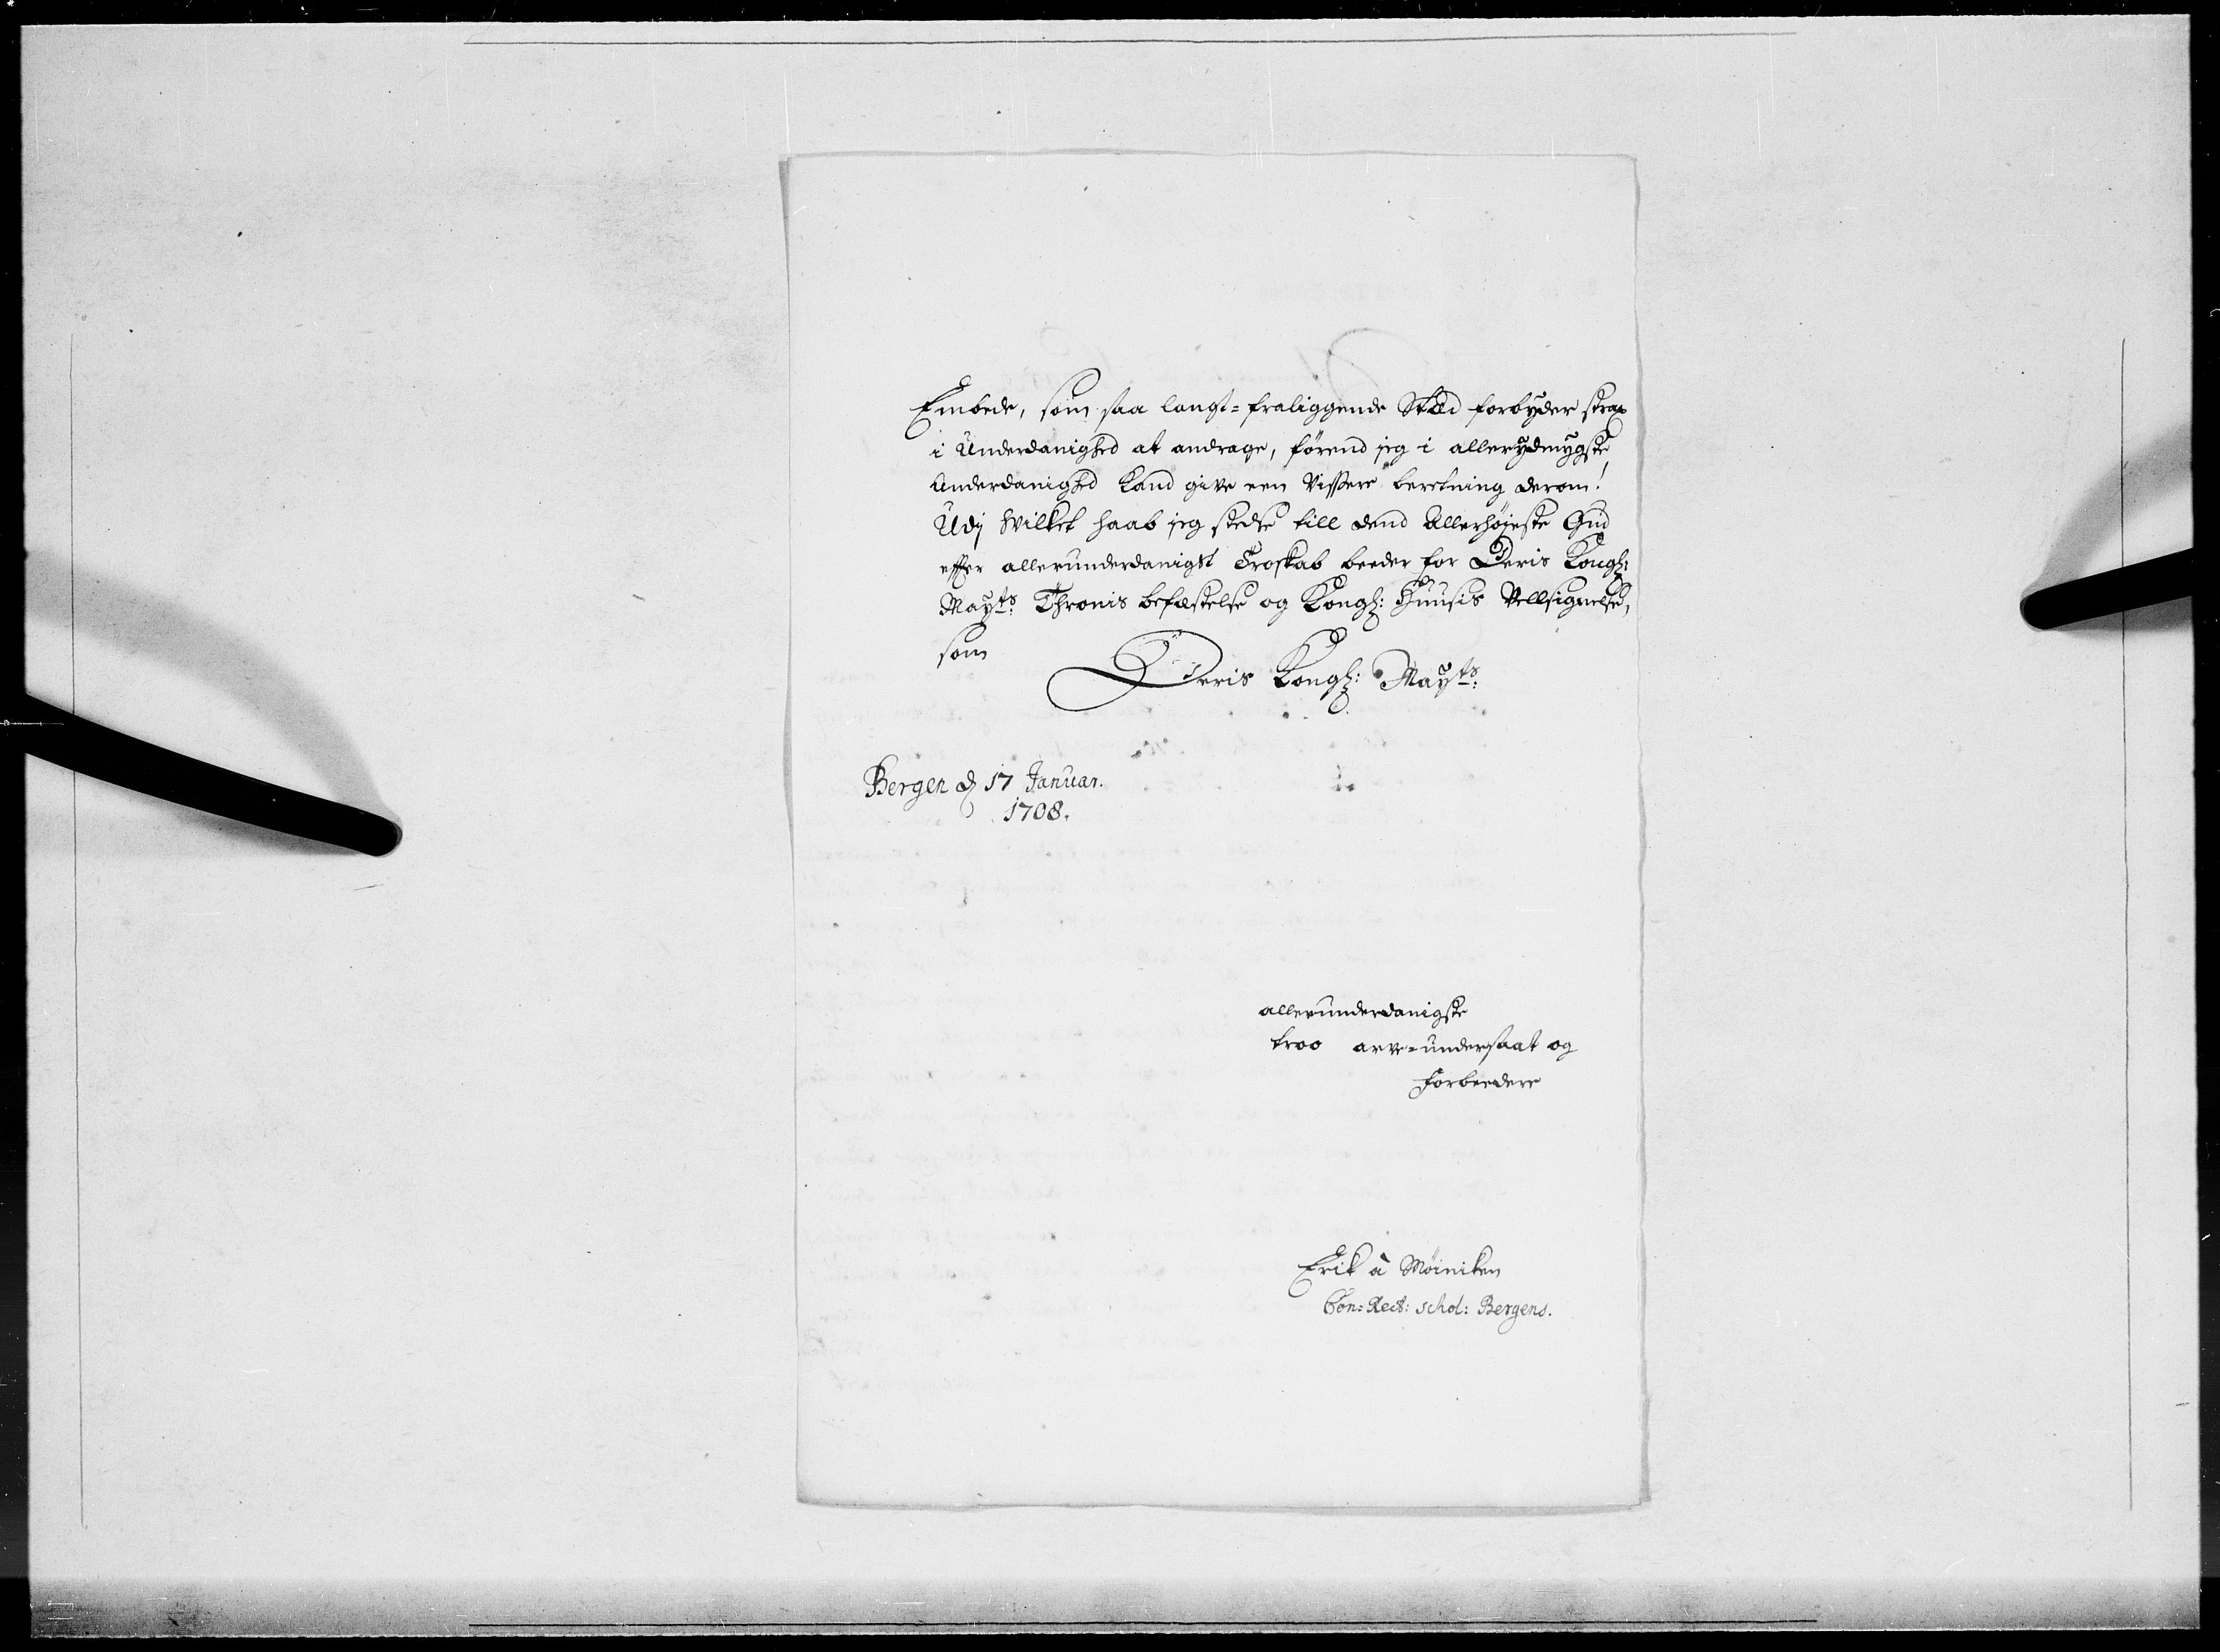 Embede, som saa langt=fraliggende Stæd forbyder strax
i Underdanighed at andrage, førend jeg i allerydmygste
Underdanighed Kand give een Vissere beretning derom!
Udj hvilket haab jeg stedse till dend Allerhøjeste Gud
effter allerunderdanigst Troskab beeder for Deris Kongl:
Mayts: Thronis befæstelse og Kongl: Huusis Vellsignelse,
som
Deris Kongl: Mayts:
Bergen d 17 Januar.
1708.
allerunderdanigste
troo arve=undersaat og
forbeedere
Erik à Møiniken
Con=Rect: schol: Bergens.